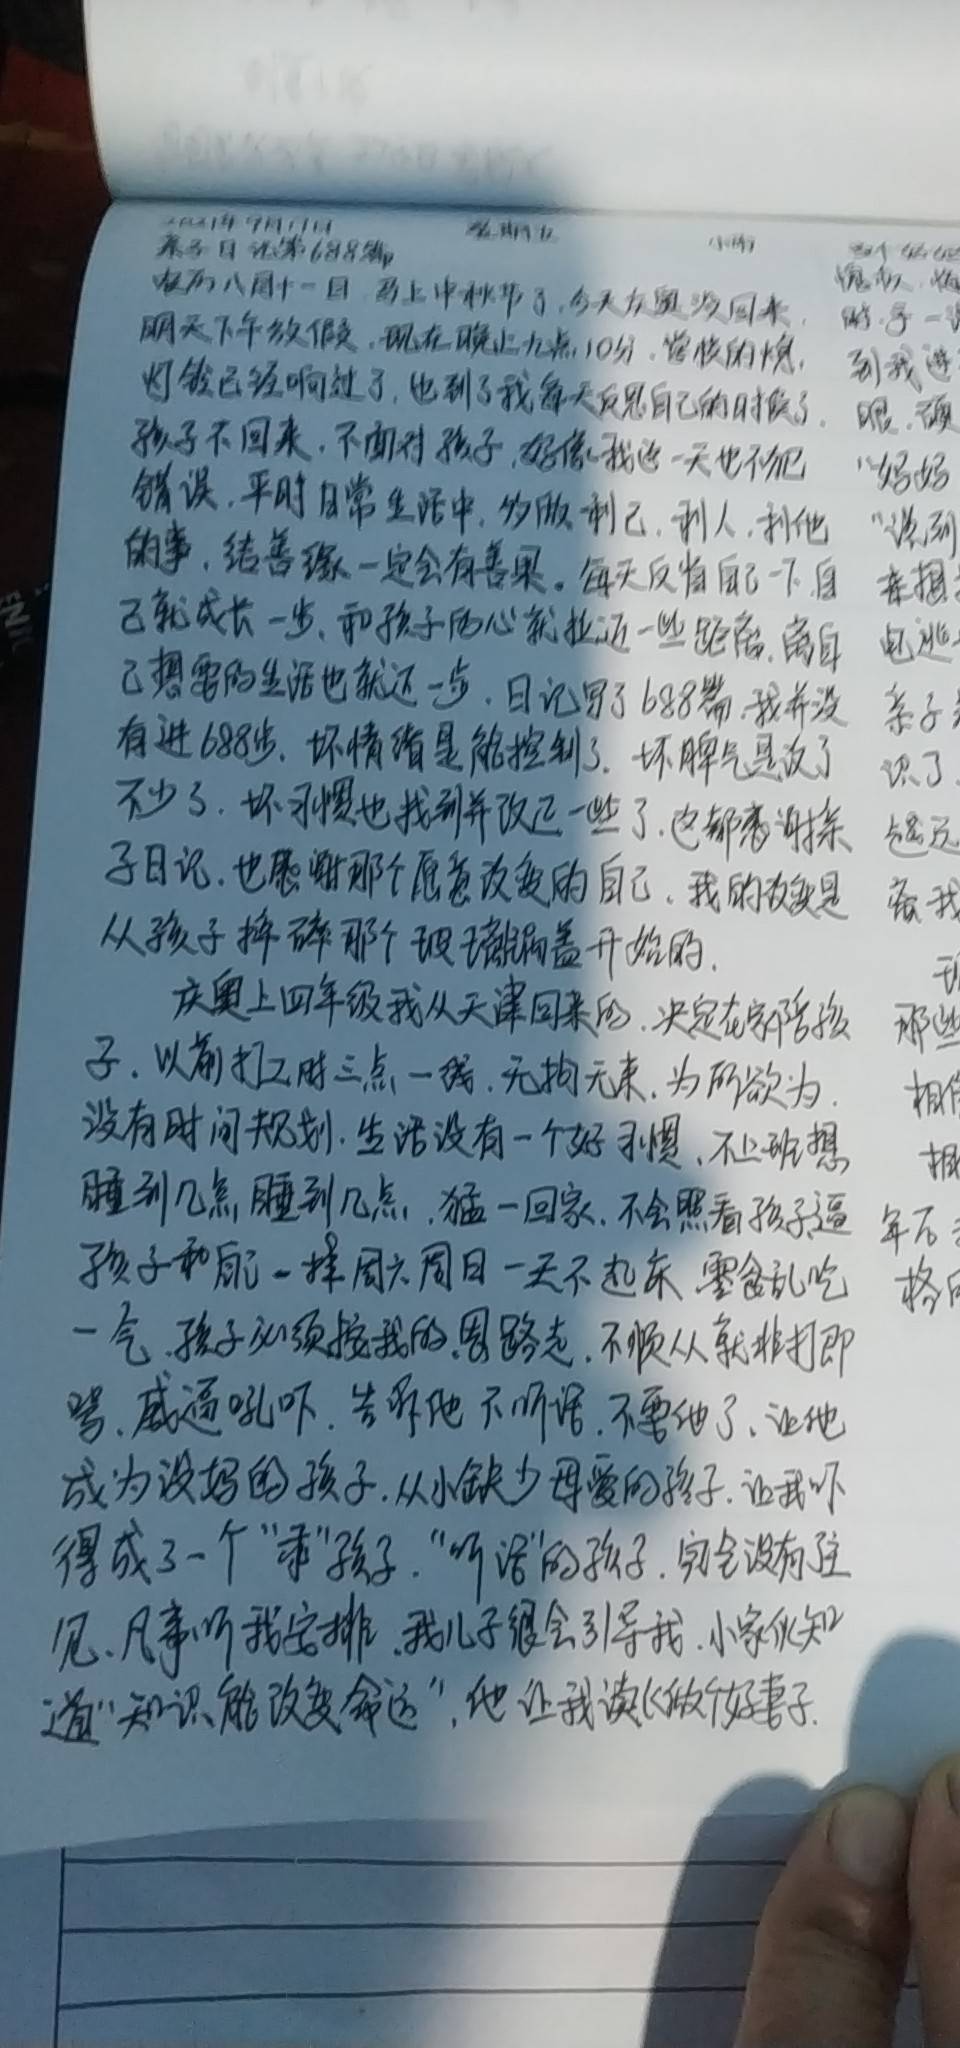 2021年9月17日 星期五 小雨
亲子日记第688篇
农历八月十一日 马上中秋节了,今天庆奥没回来,
明天下午放假,现在晚上九点10分,学校的熄,
灯铃已经响过了,也到了我每天反思自己的时候了,
孩子不回来,不面对孩子,好像我这一天也不犯
错误,平时日常生活中,多做利己,利人,利他
的事,结善缘一定会有善果。每天反省自己一下,自
己就成长一步,和孩子的心就拉近一些距离,离自
己想要的生活也就近一步,日记写了688篇,我并没
有进688步,坏情绪是能控制了,坏脾气是改了
不少了,坏习惯也找到并改正一些了,这都感谢亲
子日记,也感谢那个愿意改变的自己,我的改变是
从孩子摔碎那个玻璃锅盖开始的,
庆奥上四年级我从天津回来的,决定在家陪孩
子,以前打工时三点一线,无拘无束,为所欲为,
没有时间规划,生活没有一个好习惯,不上班想
睡到几点睡到几点,猛一回家,不会照看孩子逼
孩子和自己一样周六周日一天不起床,零食乱吃
一气,孩子必须按我的思路走,不顺从就非打即
骂,威逼吼吓,告诉他不听话,不要他了,让他
成为没妈的孩子,从小缺少母爱的孩子,让我吓
得成了一个"乖"孩子,"听话"的孩子,完全没有主
见,凡事听我安排,我儿子很会引导我,小家伙知
道"知识能改变命运",他让我读《做个好妻子
愧
时,子一
到我进
眼,
"妈妈
"说到
幸想
电
亲子
识了,
越
我
那些
相信
年后
格